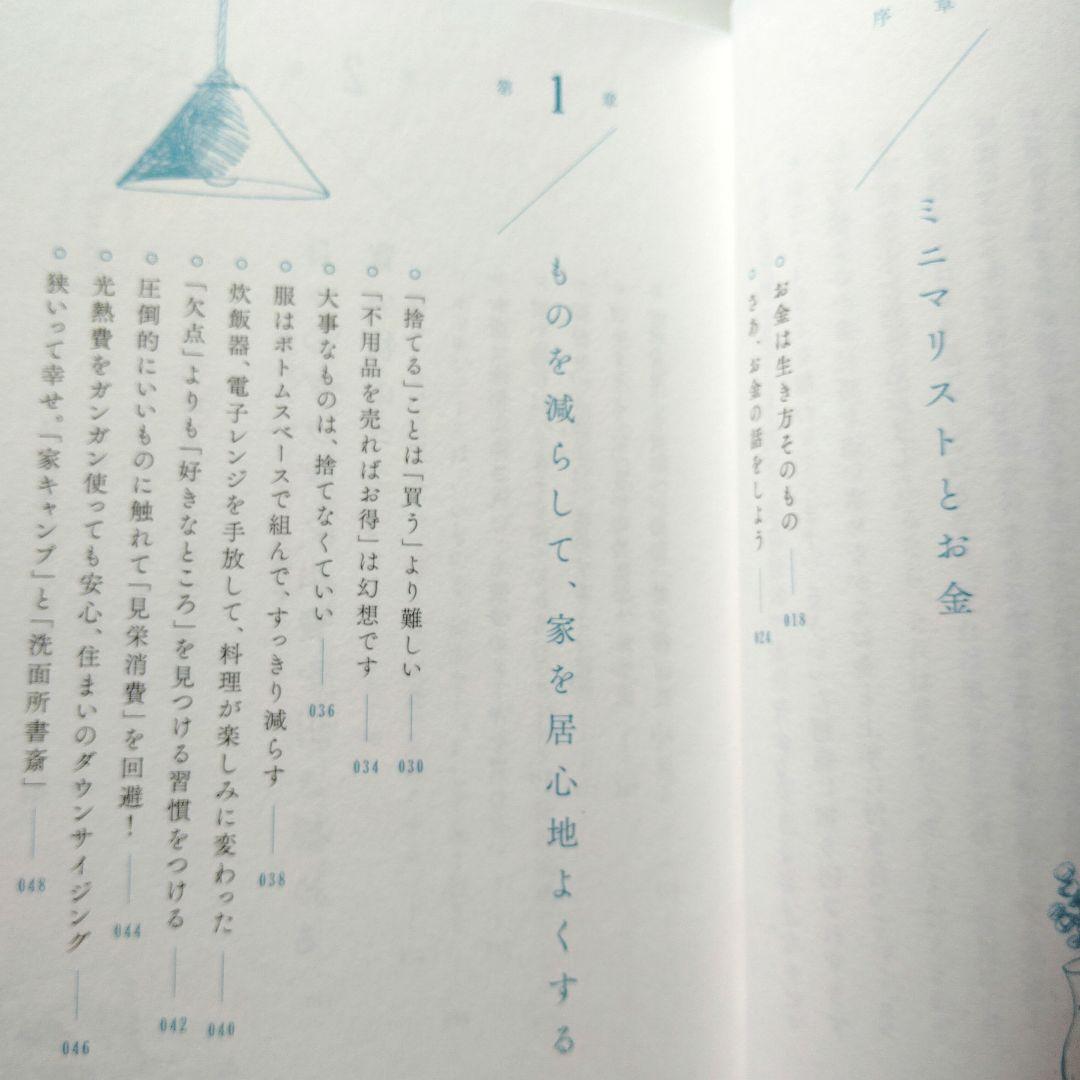 序章
ミニマリストとお金
お金は生き方そのもの 018
さあ、お金の話をしよう 024
第1章
ものを減らして、家を居心地よくする
「捨てる」ことは「買う」より難しい 030
「不用品を売ればお得」は幻想です 034
大事なものは、捨てなくていい 036
服はボトムスベースで組んで、すっきり減らす 038
炊飯器、電子レンジを手放して、料理が楽しみに変わった 040
「欠点」よりも「好きなところ」を見つける習慣をつける 042
圧倒的にいいものに触れて「見栄消費」を回避! 044
光熱費をガンガン使っても安心、住まいのダウンサイジング 046
狭いって幸せ。「家キャンプ」と「洗面所書斎」 048